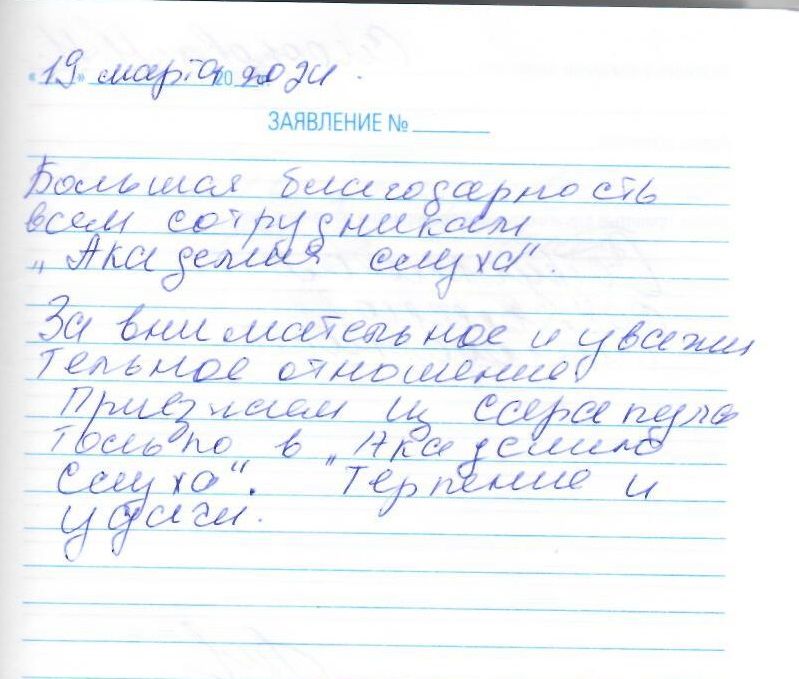 «19» марта 20 2021.
ЗАЯВЛЕНИЕ №
Большая благодарность
всем сотрудникам
„Академия слуха".
За внимательное и уважи
тельное отношение
Приезжаем из Сарапула
только в „Академию
слуха". Терпение и
удачи.